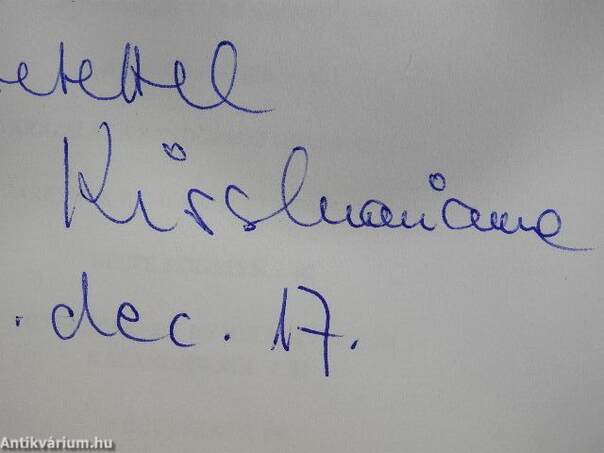 etettel
Kiss Marianne
. dec. 17.
Antikvárium.hu